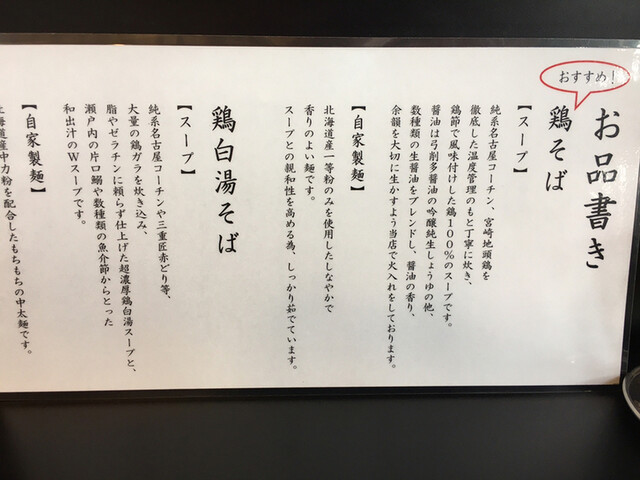 お品書き
おすすめ!
鶏そば
【スープ】
純系名古屋コーチン、宮崎地頭鶏を
徹底した温度管理のもと丁寧に炊き、
鶏節で風味付けした鶏100%のスープです。
醤油は弓削多醤油の吟醸純生しょうゆの他、
数種類の生醤油をブレンドし、醤油の香り、
余韻を大切に生かすよう当店で火入れをしております。
【自家製麺】
北海道産一等粉のみを使用したしなやかで
香りのよい麺です。
スープとの親和性を高める為、しっかり茹でています。
鶏白湯そば
【スープ】
純系名古屋コーチンや三重匠赤どり等、
大量の鶏ガラを炊き込み、
脂やゼラチンに頼らず仕上げた超濃厚鶏白湯スープと、
瀬戸内の片口鰯や数種類の魚介節からとった
和出汁のWスープです。
【自家製麺】
北海道産中力粉を配合したもちもちの中太麺です。